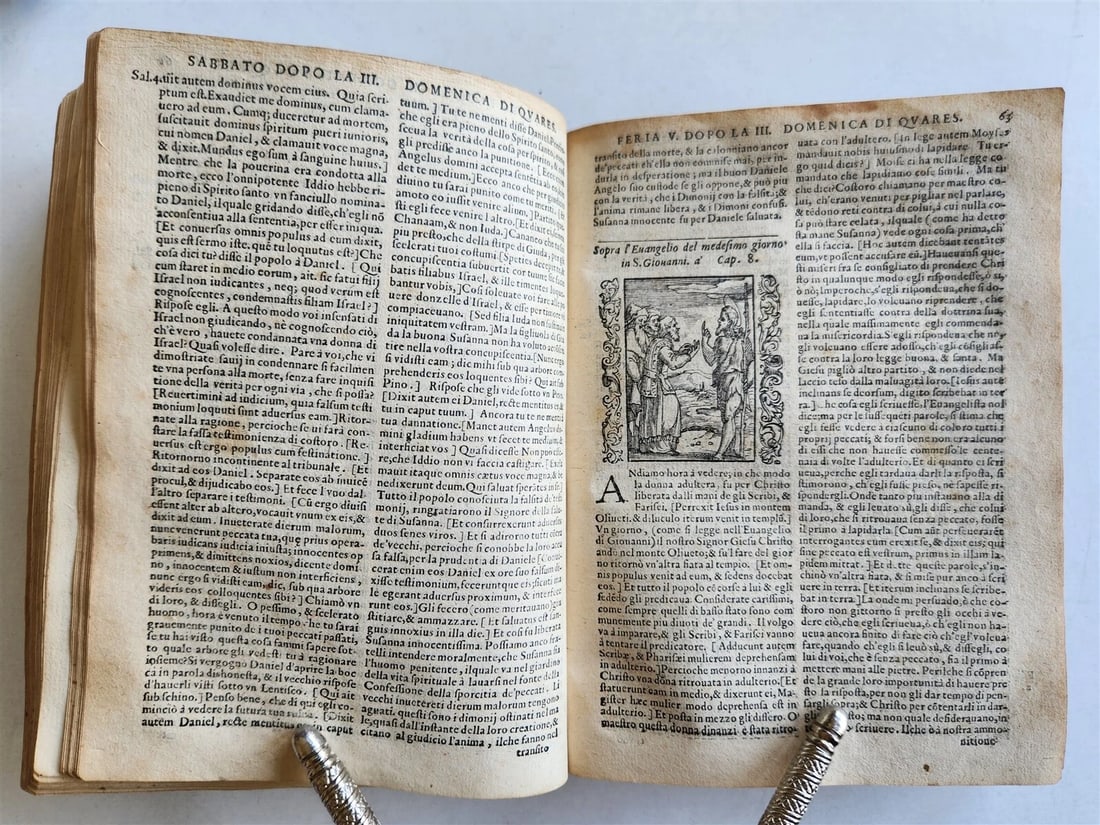 SABBATO DOPO LA III.
Sal.4. uit autem dominus vocem eius. Quia scri-
ptum est. Exaudiet me dominus, cum clama-
uero ad eum. Cumq; duceretur ad mortem,
suscitauit dominus spiritum pueri iunioris,
cui nomen Daniel, & clamauit voce magna,
& dixit. Mundus ego sum à sanguine huius.]
Mentre che la pouerina era condotta alla
morte, ecco l'onnipotente Iddio hebbe ri-
pieno di Spirito santo vn fanciullo nomina
to Daniel, ilquale gridando disse, ch'egli nō
acconsentiua alla sententia, per esser iniqua.
[Et conuersus omnis populus ad eum dixit,
quis est sermo iste, quē tu loquutus es?] Che
cosa dici tu? disse il popolo à Daniel. [Qui
cum staret in medio eorum, ait. sic fatui filij
Israel non iudicantes, neq; quod verum est
cognoscentes, condemnastis filiam Israel?]
Rispose egli. A questo modo voi insensati di
Israel non giudicando, nè cognoscendo ciò,
ch'è vero, hauete condannata vna donna di
Israel? Quasi volesse dire. Pare à voi, che vi
dimostriate sauij in condennare si facilmen
te vna persona alla morte, senza fare inquisi
tione della verità per ogni via, che si possa?
[Reuertimini ad iudicium, quia falsum testi
monium loquuti sunt aduersus eam.] Ritor-
nate alla ragione, percioche se ui farà con-
stare la falsa testimonienza di costoro. [Re-
uersus est ergo populus cum festinatione.]
Ritornorno incontinente al tribunale. [Et
dixit ad eos Daniel. Separate eos ab inuicē
procul, & dijudicabo eos.] Et fece l'vno dal-
l'altro separare i testimoni. [Cū ergo diuisi
essent alter ab altero, vocauit vnum ex eis, &
dixit ad eum. Inueterate dierum malorum,
nunc venerunt peccata tua, quę prius opera-
baris iudicans iudicia iniusta; innocentes op
primens, & dimittens noxios, dicente domi
no, innocentem & iustum non interficiens,
nunc ergo si vidisti eam, dic, sub qua arbore
videris eos colloquentes sibi?] Chiamò vn
di loro, & dissegli. O pessimo, & scelerato
huomo, hora è venuto il tempo che tu sarai
grauemente punito de i tuoi peccati passati,
se tu hai visto questa cosa fammi sapere sot-
to quale arbore gli vedesti tu à ragionare
insieme? Si vergogno Daniel d'aprire la boc
cà in parola dishonesta, & il vecchio rispose
d'hauerli visti sotto vn Lentisco. [Qui ait
sub schino.] Penso bene, che di qui egli co-
minciò à vedere la futura tua ruina. [Dixit
autem Daniel, recte mentitus es in caput
DOMENICA DI QVARES.
tuum.] Tu te ne menti disse Daniel. Perche
che egli era pieno dello Spirito santo, cono
sceua la verità della cosa per spirito, &
gli predisse anco la punitione. [Ecce enim
Angelus domini accepta sententia ab eo, scin
det te medium.] Ecco anco che per giudicio
diuino tu sarai punito come tu meriti. [Et
amoto eo iussit venire alium.] Partito
sti egli fece venire l'altro. [Et dixit ei. Semen
Chanaam, & non Iuda.] Cananeo che tu sei
piu presto, che della stirpe di Giuda, per gli
scelerati tuoi costumi. [Species decepit te, &
concupiscentia subuertit cor tuum, sic facie
batis filiabus Israel, & ille timentes loque
bantur vobis.] Cosi soleuate voi fare alle po
uere donzelle d'Israel, & esse per timore
compiaceuano. [Sed filia Iuda non sustinuit
iniquitatem vestram.] Ma la figliuola di Giu
da la buona Susanna non ha voluto acconsen
tire nella vostra concupiscentia. [Nunc ergo
si vidisti eam; dic mihi sub qua arbore com
prehenderis eos loquentes sibi? Qui ait sub
Pino.] Rispose che gli vide sotto vn Pino.
[Dixit autem ei Daniel, recte mentitus es &
tu in caput tuum.] Ancora tu te ne menti à
tua dannatione. [Manet autem Angelus do-
mini gladium habens vt secet te medium, &
interficiat vos] Quasi dicesse. Non puo esse-
re, che Iddio non vi faccia castigare. [Excla
mauit itaque omnis cœtus voce magna, & be
nedixerunt deum. Qui saluat sperātes in se.]
Tutto il popolo conosciuta la falsità de' testi
monij, ringratiarono il Signore della salu-
te di Susanna. [Et consurrexerunt aduersus
duos senes viros.] Et si adirorno tutti contra
de'vecchi, percioche si conobbe la loro accu
sa falsa, per la prudentia di Daniele [Conui-
cerat enim eos Daniel ex ore suo falsum di-
xisse testimonium, feceruntque eis, sicuti ma
le egerant aduersus proximum, & interfece-
runt eos.] Gli fecero (come meritauano) gra
stitiare, & ammazzare. [Et saluatus est san-
guis innoxius in illa die.] Et cosi fu liberata
Susanna innocentissima. Possiamo anco fra-
telli intendere moralmente, che Susanna sia
l'huomo penitente, ilquale va nel giardino
della vita spirituale à lauarsi nel fonte della
Confessione della sporcitia de'peccati. Li
vecchi inuecchiati dierum malorum tengono
aguati. questi sono i dimonij ostinati nel ma
le, quasi dall'instante della loro creatione, &
citano al giudicio l'anima, ilche fanno nel
transito
FERIA V. DOPO LA III. DOMENICA DI QVARES.
65
transito della morte, & la colonniano ancor
de'peccati ch'ella non commise mai, per in-
durla in desperatione; ma il buon Daniele
Angelo suo custode se gli oppone, & può piu
con la verità, che i Dimonij con la falsità; &
l'anima rimane libera, & i Dimoni confusi.
Susanna innocente fu per Daniele saluata.
Sopra l'Euangelio del medesimo giorno
in S. Giouanni. a' Cap. 8.
ANdiamo hora à vedere, in che modo
la donna adultera, fu per Christo
liberata dalli mani de gli Scribi, &
Farisei. [Perrexit Iesus in montem
Oliueti, & diluculo iterum venit in templū.]
Vn giorno, (come si legge nell'Euangelio
di Giouanni) il nostro Signor Giesu Christo
andò nel monte Oliueto; & su'l fare del gior
no ritornò vn'altra fiata al tempio. [Et om-
nis populus venit ad eum, & sedens docebat
eos.] Et tutto il popolo cōcorse a lui & egli
sedēdo gli predicaua. Considerate carissimi,
come sempre quelli di basso stato sono com
munemente piu diuoti de' grandi. Il volgo
va à imparare, & gli Scribi, & Farisei vanno
à tentare il predicatore. [Adducunt autem
Scribæ, & Pharisei mulierem deprehensam
in adulterio.] Percioche menorno innanzi à
Christo vna dōna ritrouata in adulterio. [Et
statuerunt eam in medio, & dixerunt ei, Ma-
gister hæc mulier modo deprehensa est in
adulterio.] Et posta in mezzo gli dissero. O
maestro questa donna dinanzi è stata ritro-
uata con l'adultero. [in lege autem Moyses
mandauit nobis huiusmodi lapidare. Tu er-
go quid dicis?] Moise ci ha nella legge co-
mandato che lapidiamo cose simili. Ma tu
che dici? Costoro chiamano per maestro co-
lui, ch'erano venuti per pigliar nel parlare,
& tēdono reti contra di colui, à cui nulla co-
sa può stare celata, ilquale (come ha detto
sta mane Susanna) vede ogni cosa prima, ch'e
ella si faccia. [Hoc autem dicebant tentātes
eum, vt possent accusare eū.] Haueuansi que-
sti miseri fra se consigliato di prendere Chri
sto in qualunque modo egli rispondesse, ò si,
ò nò; Imperoche, s'egli rispondeua, che si do-
uesse, lapidare, lo voleuano riprendere, che
egli sententiasse contra della dottrina sua,
nella quale massimamente egli commenda-
ua la misericordia. S'egli rispondea che nò,
gli voleuano essere adosso, ch'egli cōsigliaf-
se contra la loro legge buona, & santa. Ma
Giesu pigliò altro partito, & non diede nel
laccio teso dalla maluagità loro. [Iesus autē
inclinans se deorsum, digito scribebat in ter
ra.] che cosa egli scriuesse, l'Euangelista nol
dice; ma per le sussequēti parole, si stima che
egli fesse vedere à ciascuno di coloro tutti i
proprij peccati; & forsi bene non era alcuno
di essi che non hauesse commesso le cente-
naia di volte l'adulterio. Et di quanto ei scri
ueua, perche egli tardaua darli la risposta, si
stimorno, ch'egli fusse preso, ne sapesse ri-
spondergli. Onde tanto piu instauano alla di
manda, & egli leuato sù, gli disse, che colui
di loro, che si ritrouaua senza peccato, fosse
il primo à lapidarla. [Cum aūt perseuerarēt
interrogantes eum erexit se, & dixit eis; qui
sine peccato est vestrum, primus in illam la-
pidem mittat.] Et dette queste parole, s'in-
chinò vn'altra fiata, & si mise pur anco à scri
uere in terra. [Et iterum inclinans se scribe-
bat in terra.] La onde mi persuado, ch'e co-
storo non gittorno si presto gli occhi à ve-
dere ciò, che egli scriueua, ò ch'egli non ha-
ueua ancora finito di fare ciò ch'egl'voleua
fare, quando ch'egli si leuò sù, & dissegli, co
lui di voi, che è senza peccato, sia il primo à
mettere mani alle pietre. Perilche si compre
de la grande loro importunità di hauere pre
sto la risposta, per non gli dar tempo di pen-
sargli sopra; & Christo per cōtentarli in dar-
gli presto; ma non quale desiderauano, in
scriuere. Ilche dà nostra ammo-
nitione